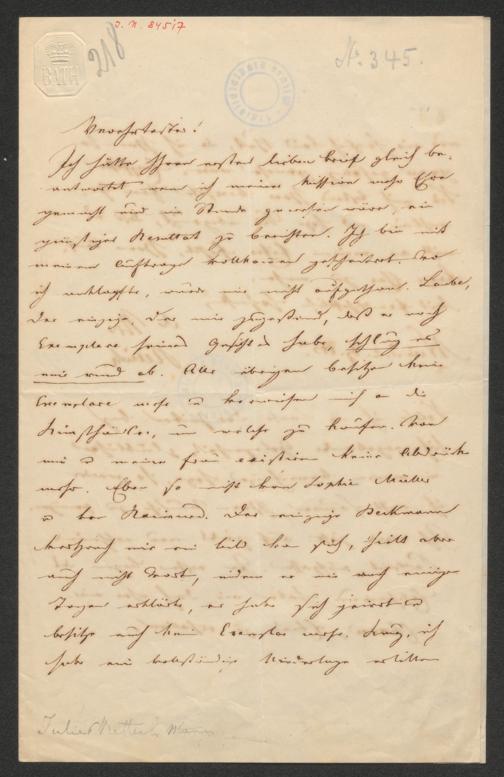 J. N. 84517
218
BATH
No. 345.
Verehrtester!
Ich hätte Ihren ersten lieben Brief gleich be-
antwortet, wenn ich meiner Mission mehr Ehre
gemacht und im Stande gewesen wäre, ein
günstiges Resultat zu berichten. Ich bin mit
meinem Auftrage vollkommen gescheitert. Wo
ich anklopfte, wurde mir nicht aufgethan. Laube,
der einzige der mir zugestand, daß er noch
Exemplare seines habe, schlug es
mir rund ab. Alle übrigen besitzen kein
Exemplar mehr u verweisen mich an die
Kunsthändler, um welche zu kaufen. Von
mir u meiner Frau existiren keine Abdrücke
mehr. Eben so nicht von Sophie Müller
u von Raimund. Der einzige Beckmann
versprach mir ein Bild von sich, hielt aber
auch nicht Wort, indem er mir nach einigen
Tagen erklärte, er habe sich geirrt u
besitze auch kein Exemplar mehr. Kurz, ich
habe eine vollständige Niederlage erlitten
Julie Rettich Mann